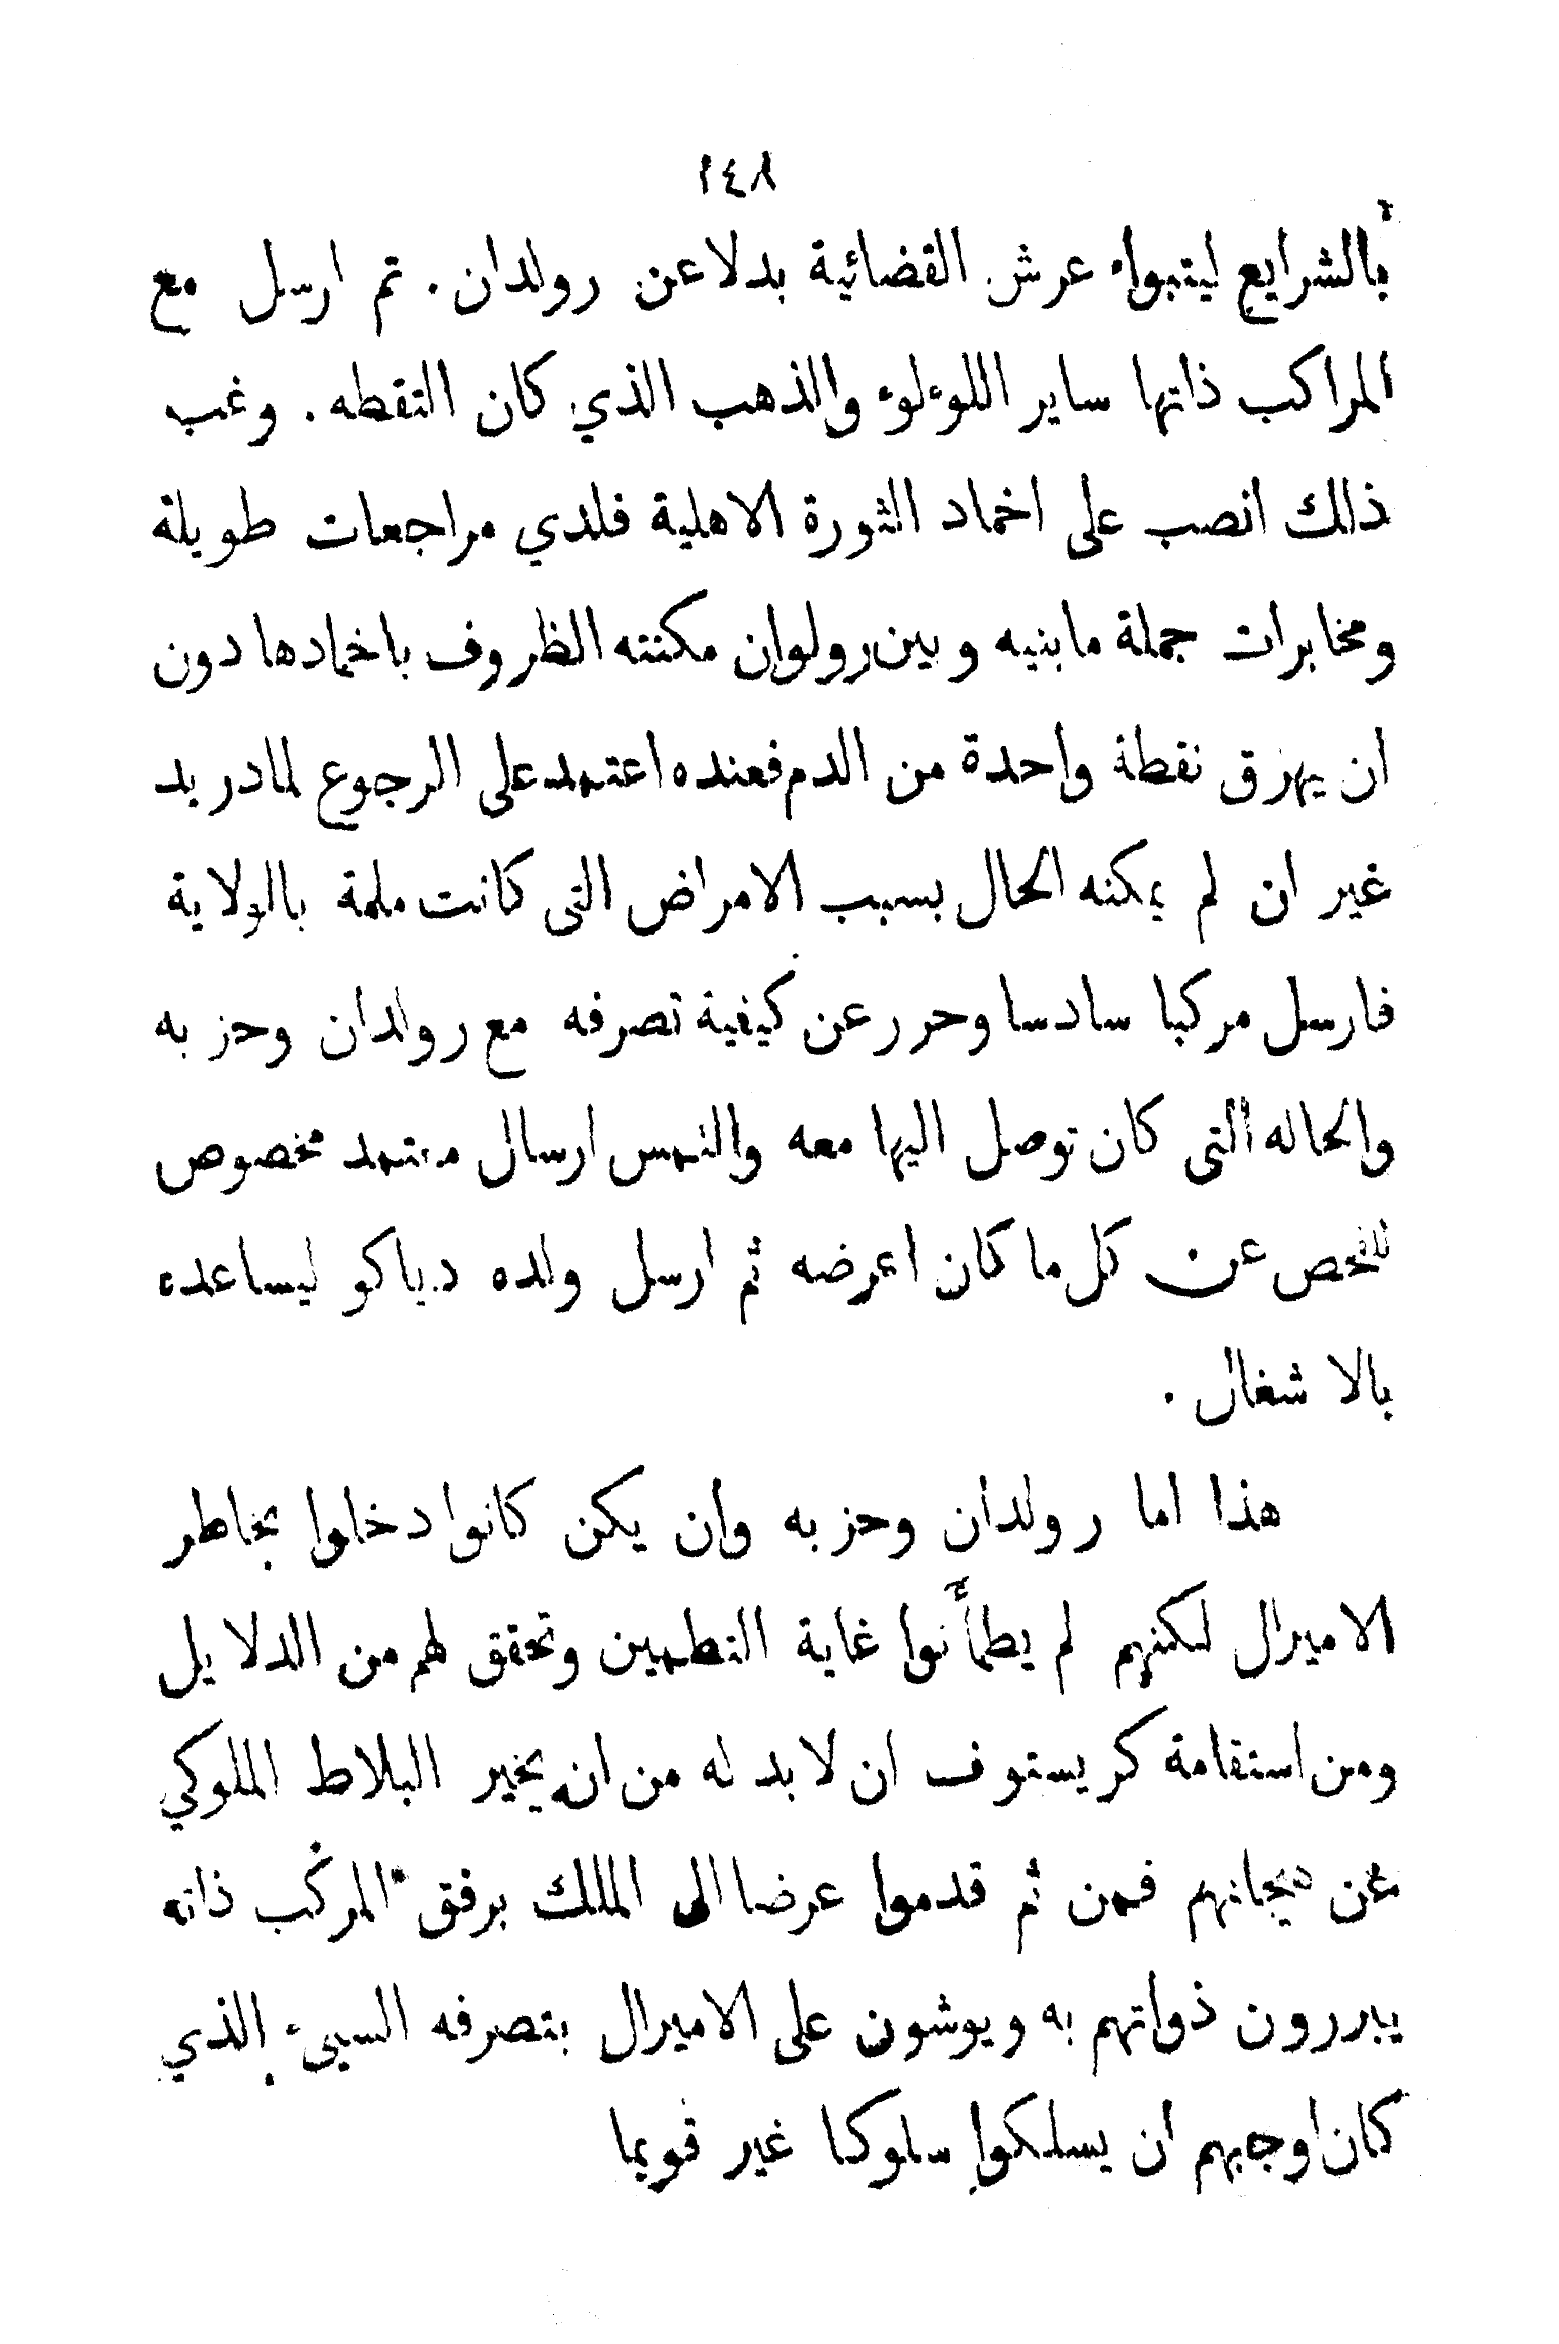 ١٤٨
بالشرايع ليتبواء عرش القضائية بدلا عن رولدان. ثم ارسل مع
المراكب ذاتها ساير اللوءلوء والذهب الذي كان التقطه. وغب
ذلك انصب على اخماد الثورة الاهلية فلدي مراجعات طويلة
ومخابرات جملة مابنيه وبين رولوان مكنته الظروف باخمادها دون
ان يهزق نقطة واحدة من الدم فعنده اعتمد على الرجوع لمادريد
غير ان لم يمكنه الحال بسبب الامراض التى كانت ملمة بالولاية
فارسل مركبا سادسا وحرر عن كيفية تصرفه مع رولدان وحزبه
والحاله التى كان توصل اليها معه والتمس ارسال معتمد مخصوص
للفحص عن كل ما كان اعرضه ثم ارسل ولده دياكو ليساعده
بالاشغال.
هذا اما رولدان وحزبه وان يكن كانوا دخلوا بخاطر
الاميرال لكنهم لم يطمأنوا غاية التطمين وتحقق لهم من الدلايل
ومن استقامة كريستوف ان لا بد له من انه يخبر البلاط الملوكي
عن هيجانهم فمن ثم قدموا عرضا الى الملك برفق المركب ذاته
يبررون ذواتهم به ويوشون على الاميرال بتصرفه السيىء الذي
كان اوجبهم ان يسلكوا سلوكا غير قويما